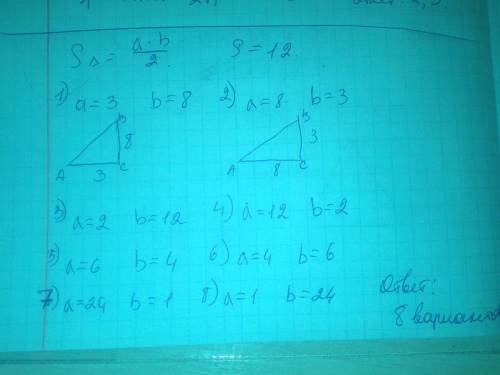 S△ = a·b/2   S = 12
1) a = 3   b = 8   2) a = 8   b = 3
B   B
8   3
A   C   A   C
3   8
3) a = 2   b = 12   4) a = 12   b = 2
5) a = 6   b = 4   6) a = 4   b = 6
7) a = 24   b = 1   8) a = 1   b = 24
Ответ:
8 вариантов